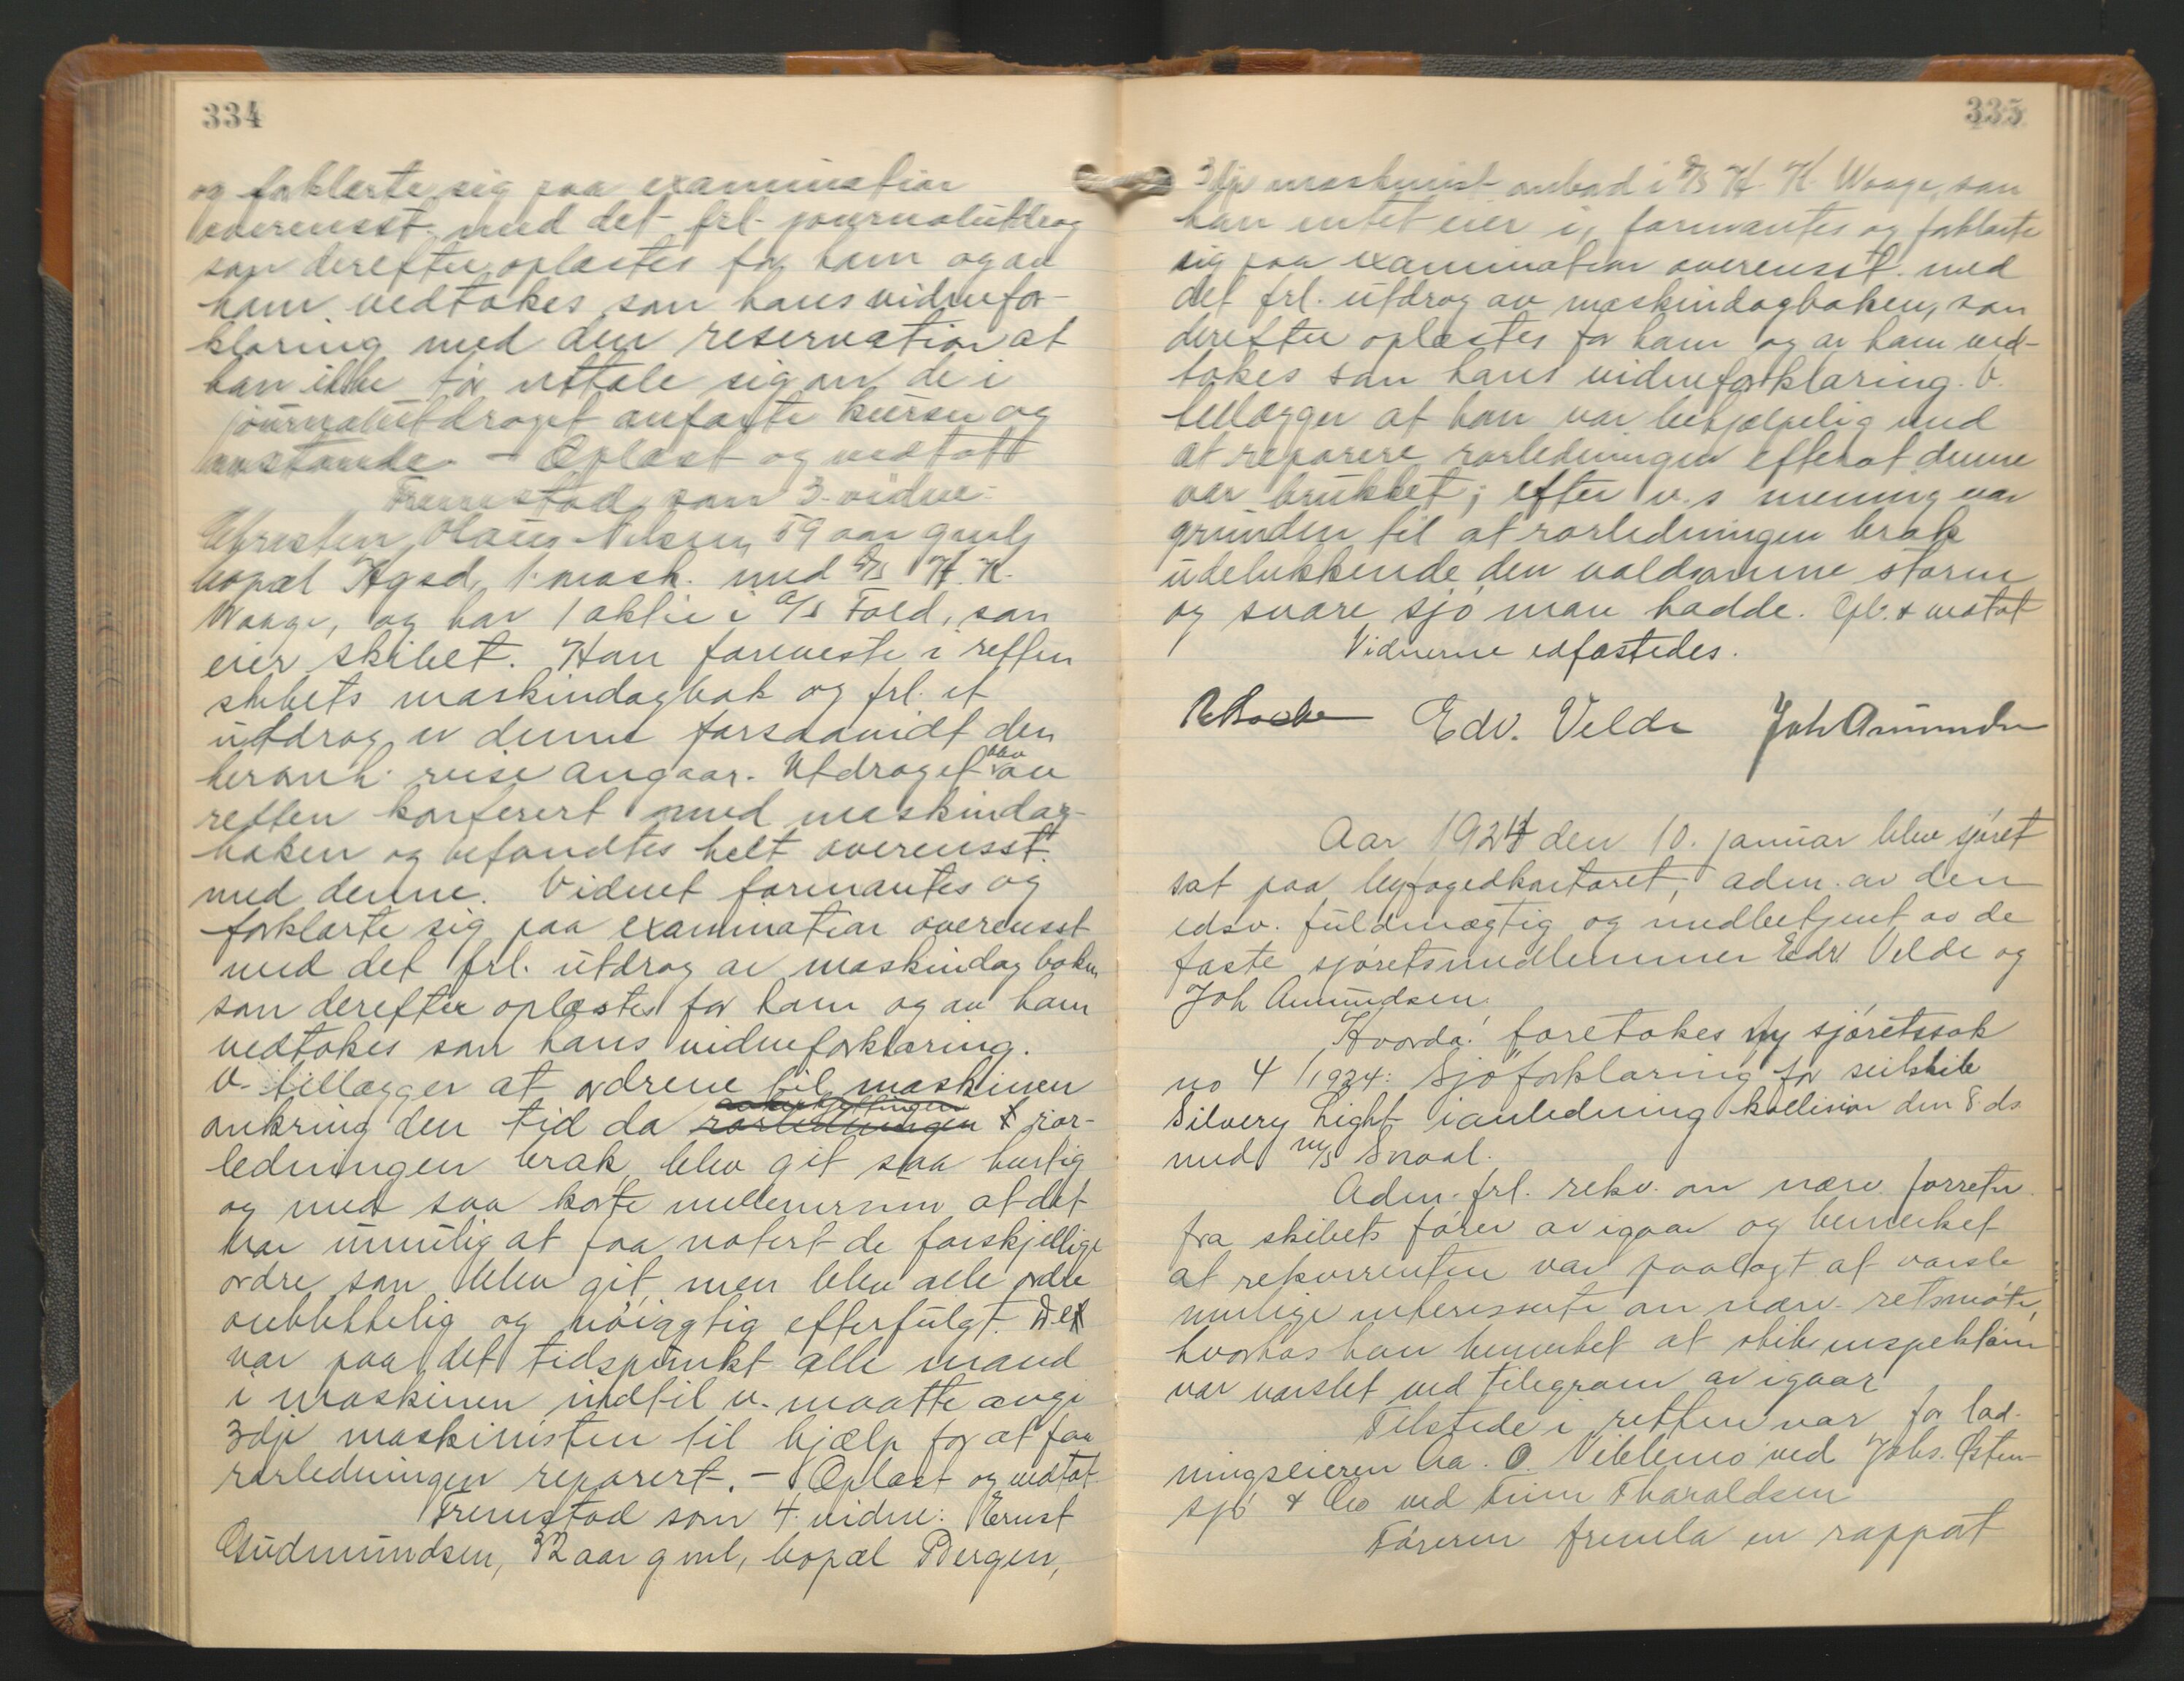 334
og forklarte sig paa examination
overensst. med det frl. journalutdrag
som derefter oplæstes for ham og av
ham vedtokes som hans vidnefor-
klaring med den reservation at
han ikke tør uttale sig om de i
journalutdraget anførte kurser og
avstande. - Oplæst og vedtatt
Fremstod som 3. vidne:
Olaus Nilsen, 59 aar gml,
bopæl Hgsd, 1. mask. med D/S H. K.
Waage, og har 1 aktie i A/S Fold, som
eier skibet. Han foreviste i retten
skibets maskindagbok og frl. et
utdrag av denne forsaavidt den
heromh. reise angaar. Utdraget blev av
retten konferert med maskindag-
boken og befandtes helt overensst.
med denne. Vidnet formantes og
forklarte sig paa examination overensst
med det frl. utdrag av maskindagboken
som derefter oplæstes for ham og av ham
vedtokes som hans vidneforklaring.
V. tillægger at ordrene til maskinen
omkring den tid da rorledningen ror-
ledningen brak, blev git saa hurtig
og med saa korte mellemrum at det
var umulig at faa notert de forskjellige
ordre som blev git, men blev alle ordre
øieblikkelig og nøiagtig efterfulgt. Det
var paa det tidspunkt alle mand
i maskinen indtil v. maatte avgi
3dje maskinisten til hjælp for at faa
rorledningen reparert. - Oplæst og vedtat
Fremstod som 4. vidne: Ernst
Gudmundsen, 32 aar gml, bopæl Bergen,
335
3dje maskinist ombord i D/S H. K. Waage, som
han intet eier i, formantes og forklarte
sig paa examination overensst. med
det frl. utdrag av maskindagboken, som
derefter oplæstes for ham og av ham ved-
tokes som hans vidneforklaring. V.
tillægger at han var behjælpelig med
at reparere rorledningen efterat denne
var brukket; efter v.s mening var
grunden til at rorledningen brak
udelukkende den voldsomme storm
og svare sjø man hadde. Opl. & vedtat
Vidnerne edfæstedes.
Edv. Velde Joh Amundsen
Aar 1924 den 10. januar blev sjøret
sat paa byfogedkontoret, adm. av den
edsv. fuldmægtig og medbetjent av de
faste sjøretsmedlemmer Edv. Velde og
Joh Amundsen.
Hvorda: foretokes ny sjøretssak
no 4/1924: Sjøforklaring for seilskib
Silvery Light i anledning kollision den 8. ds.
med m/s Snaal.
Adm. frl. rekv. om nærv. forretn.
fra skibets fører av igaar og bemerket
at rekvirenten var paalagt at varsle
mulige interesserte om nærv. retsmøte,
hvorhos han bemerket at skibsinspektøren
var varslet ved telegram av igaar
Tilstede i retten var for lad-
ningseieren Aa. O. Vikbemo ved Johs. Østen-
sjø & Co ved Finn Tharaldsen
Føreren fremla en rapport